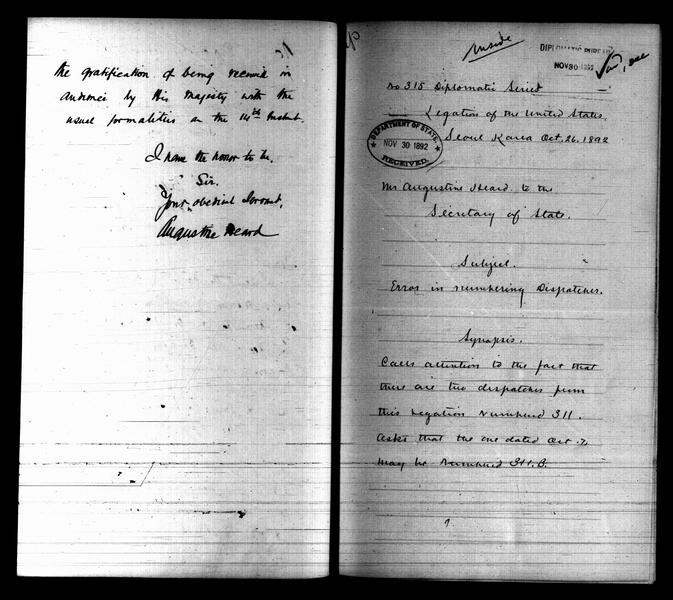 the gratification of being received in
audience by His Majesty with the
usual formalities on the 14th Instant.
I have the honor to be.
Sir.
Your obedient Servant,
Augustine Heard
Inside
DIPLOMATIC BUREAU
NOV 30 1892
No 315 Diplomatic Series
Legation of the United States,
Seoul Korea Oct. 26. 1892
DEPARTMENT OF STATE
NOV 30 1892
RECEIVED.
Mr Augustine Heard to the
Secretary of State.
Subject.
Error in numbering Dispatches.
Synopsis.
Calls attention to the fact that
there are two dispatches from
this Legation numbered 311.
Asks that the one dated Oct. 7,
may be numbered 311.B.